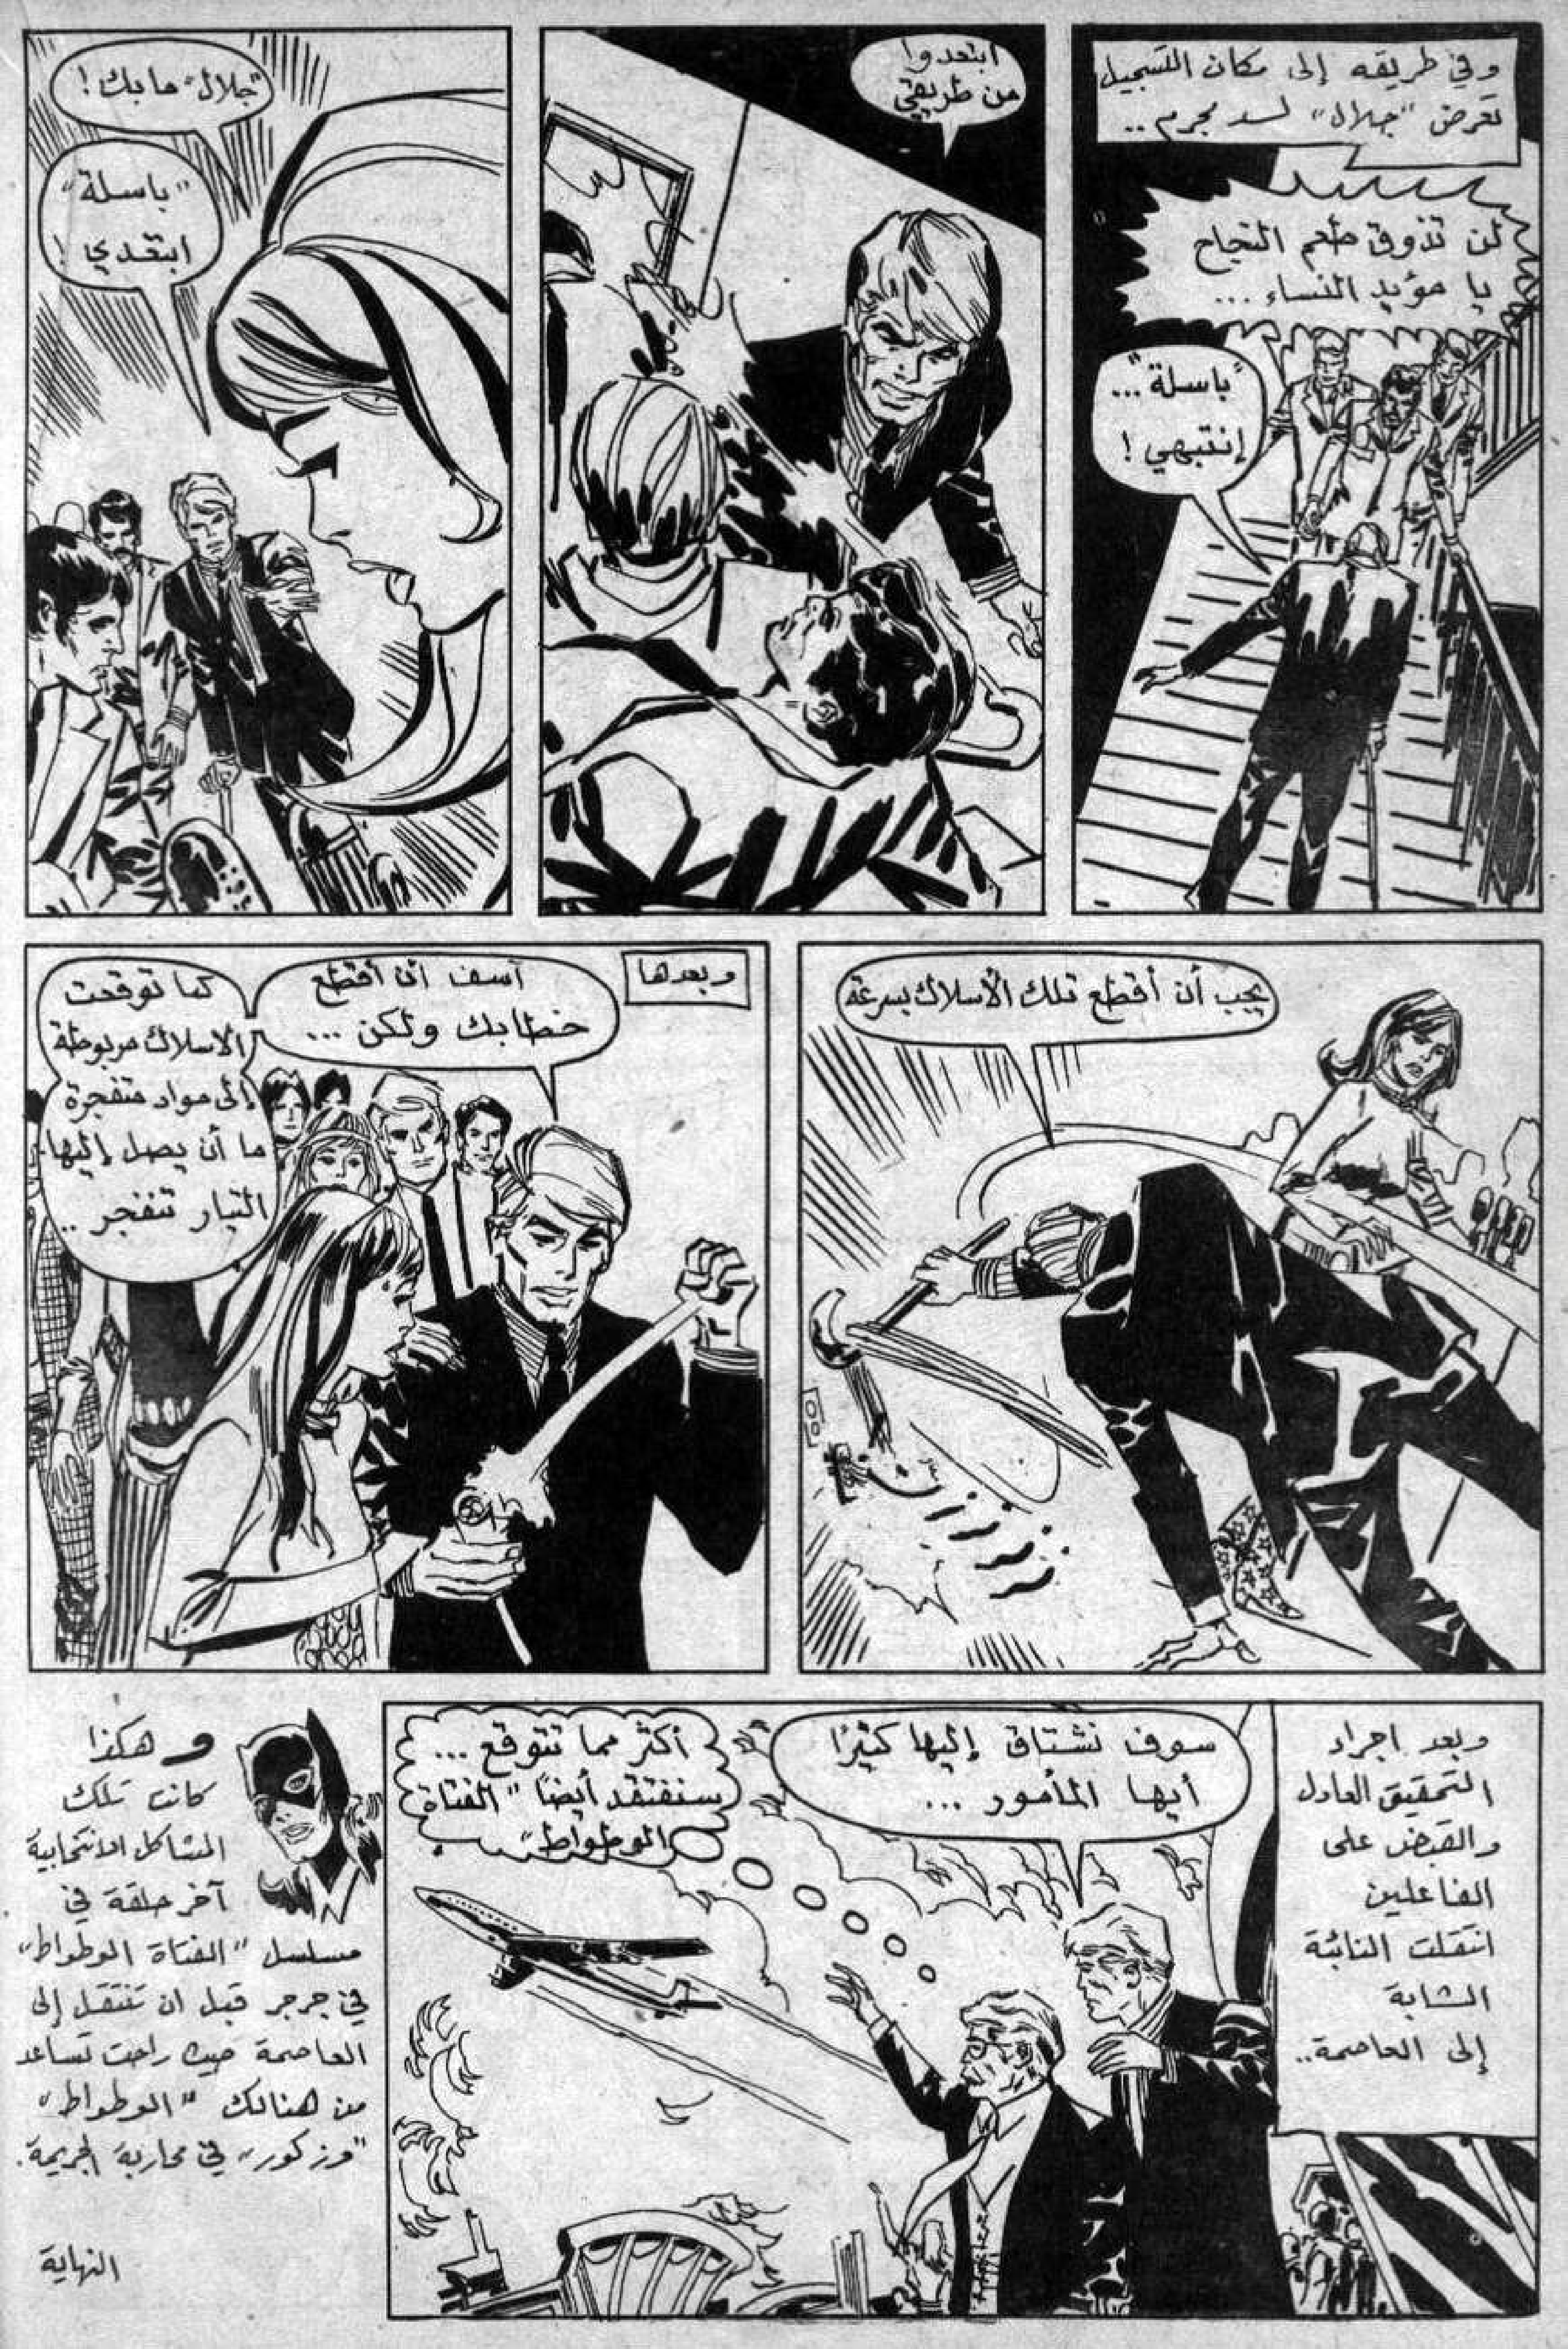 وفي طريقه إلى مكان التسجيل
تعرض "جلال" لسد مجرم ..
لن تذوق طعم النجاح
يا مؤيد النساء ...
"باسلة" ...
إنتبهي !
ابتعدوا
من طريقي
"جلال" ما بك !
"باسلة"
ابتعدي !
يجب أن أقطع تلك الأسلاك بسرعة
وبعدها
آسف ان أقطع
خطابك ولكن ...
كما توقعت
الاسلاك مربوطة
إلى مواد متفجرة
ما أن يصل إليها
التيار تنفجر ..
وبعد اجراء
التحقيق العادل
والقبض على
الفاعلين
انتقلت النائبة
الشابة
إلى العاصمة..
سوف نشتاق إليها كثيرًا
أيها المأمور ...
أكثر مما تتوقع ...
سنفتقد أيضًا "الفتاة
الوطواط"
وهكذا
كانت تلك
المشاكل الانتخابية
آخر حلقة في
مسلسل "الفتاة الوطواط"
في جرجر قبل ان تنتقل إلى
العاصمة حيث راحت تساعد
من هنالك "الوطواط"
"وزكور" في محاربة الجريمة.
النهاية